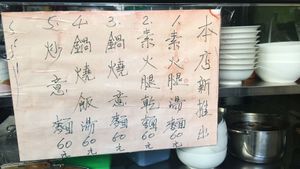 本店新推出
1. 素火腿湯麵60元
2. 素火腿乾麵60元
3. 鍋燒意麵60元
4. 鍋燒飯湯麵60元
5. 炒意麵60元